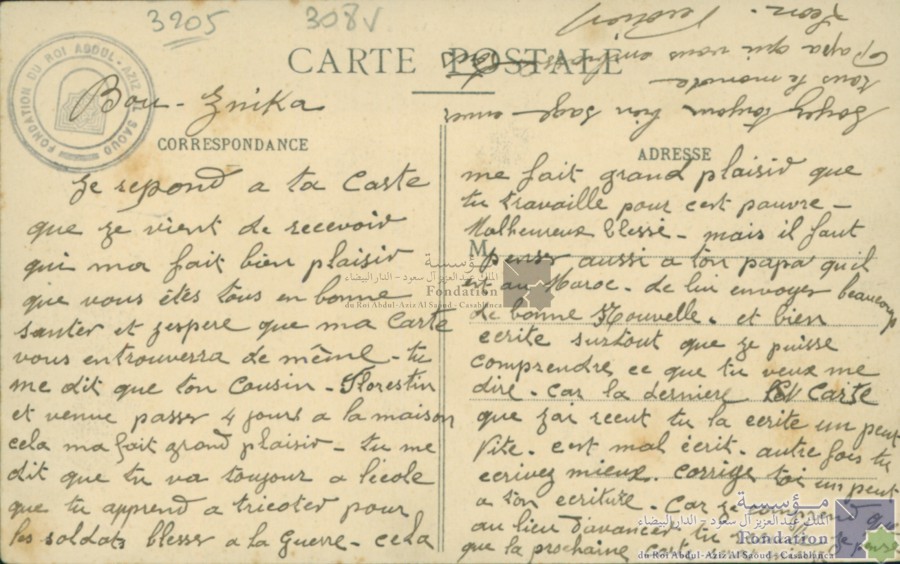 3205
308V
CARTE POSTALE
FONDATION DU ROI ABDUL-AZIZ AL SAOUD
Bou-Znika
CORRESPONDANCE
Je repond a ta Carte
que je vient de recevoir
qui ma fait bien plaisir
que vous êtes tous en bonne
santer et j'espere que ma Carte
vous entrouverra de même - tu
me dit que ton Cousin - Florestin
et venue passer 4 jours a la maison
cela ma fait grand plaisir - tu me
dit que tu va toujour a l'école
que tu apprend a tricoter pour
les soldats blesser a la Guerre - cela
ADRESSE
M
me fait grand plaisir que
tu travaille pour c'est pauvre -
Malheureux blessé - mais il faut
penser aussi a ton papa qu'il
est au Maroc - de lui envoyer beaucoup
de bonne Nouvelle. et bien
ecrite surtout que je puisse
comprendre ce que tu veux me
dire - Car la derniere Carte
que j'ai recut tu la ecrite un peut
Vite - c'est mal écrit - autre fois tu
ecrivez mieux. corrige toi un peut
a ton ecriture - Car je comprend que
au lieu d'avancer tu
que la prochaine je pense
toujour bien sage - aimer
tous le monde
Papa qui vous
Léon.
مؤسسة
الملك عبد العزيز آل سعود - الدار البيضاء
Fondation
du Roi Abdul-Aziz Al Saoud - Casablanca
مؤسسة
الملك عبد العزيز آل سعود - الدار البيضاء
Fondation
du Roi Abdul-Aziz Al Saoud - Casablanca